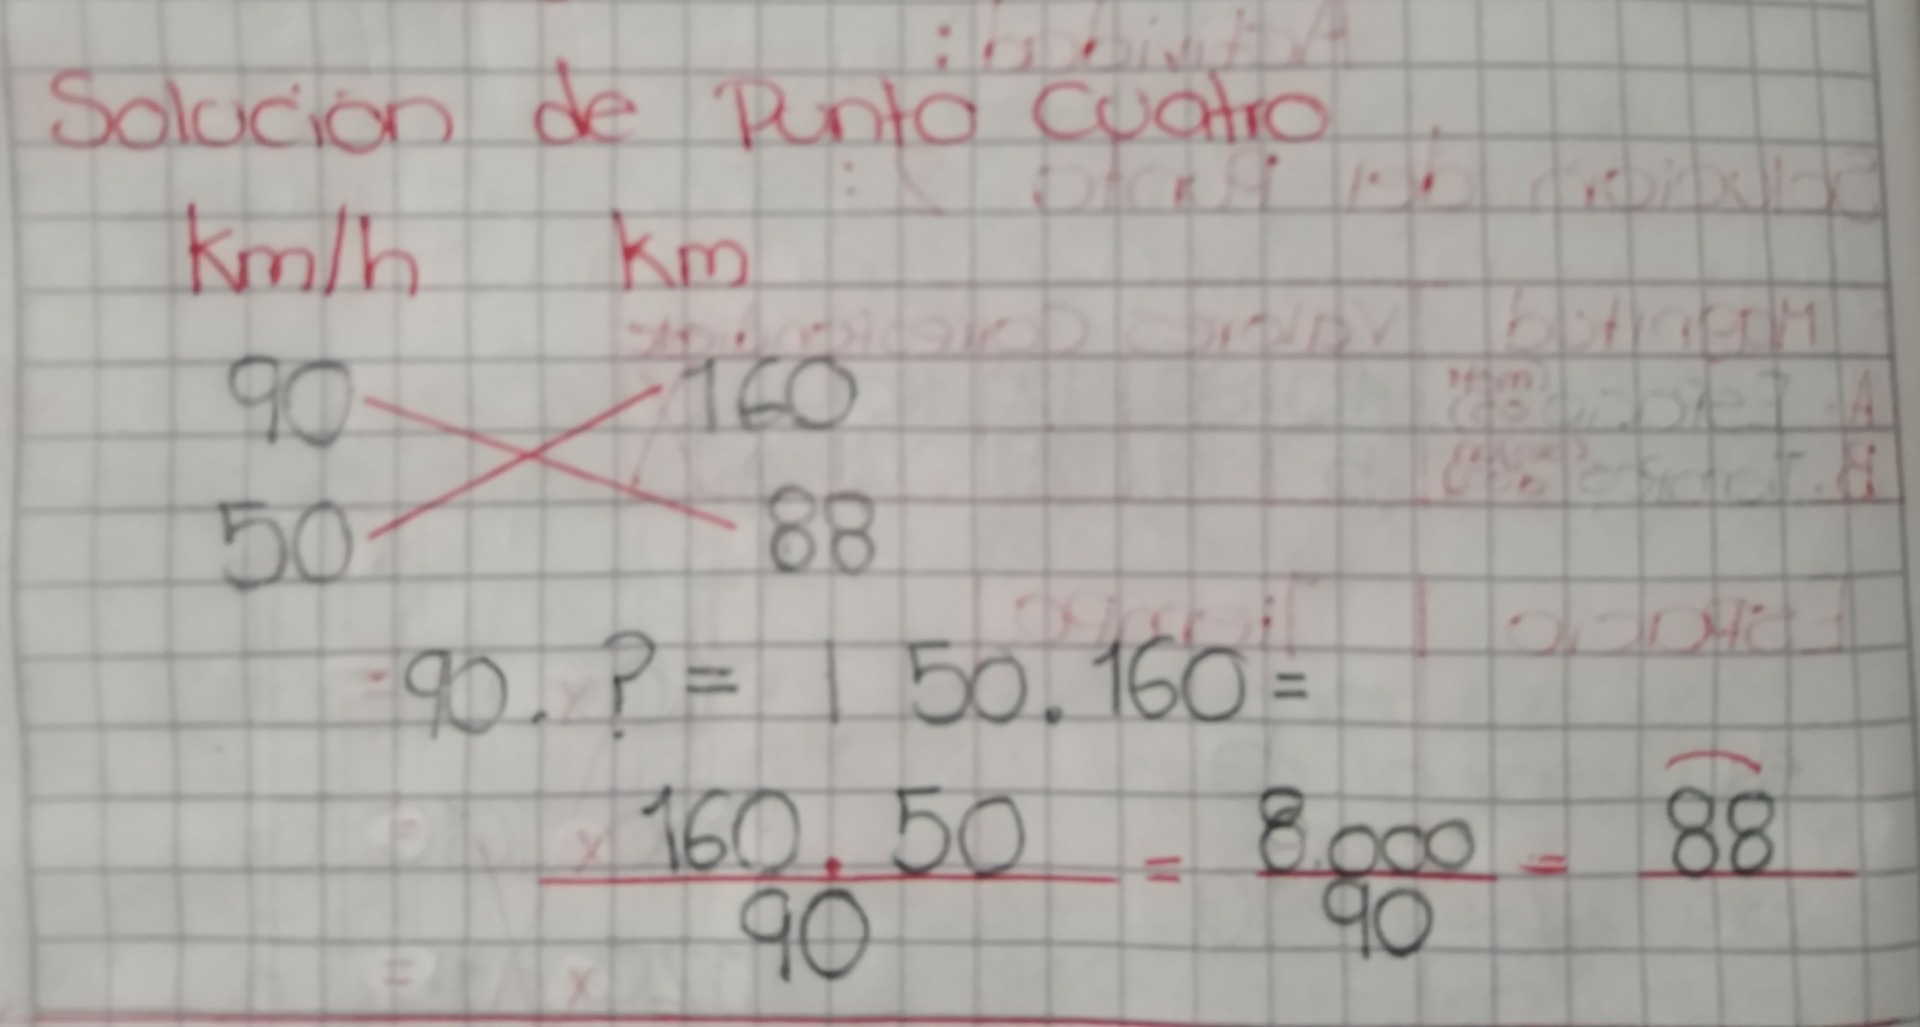 Solución de Punto Cuatro
km/h km
90 160
50 88
90 . ? = | 50 . 160 =
160 . 50 = 8.000 = 88
90 90